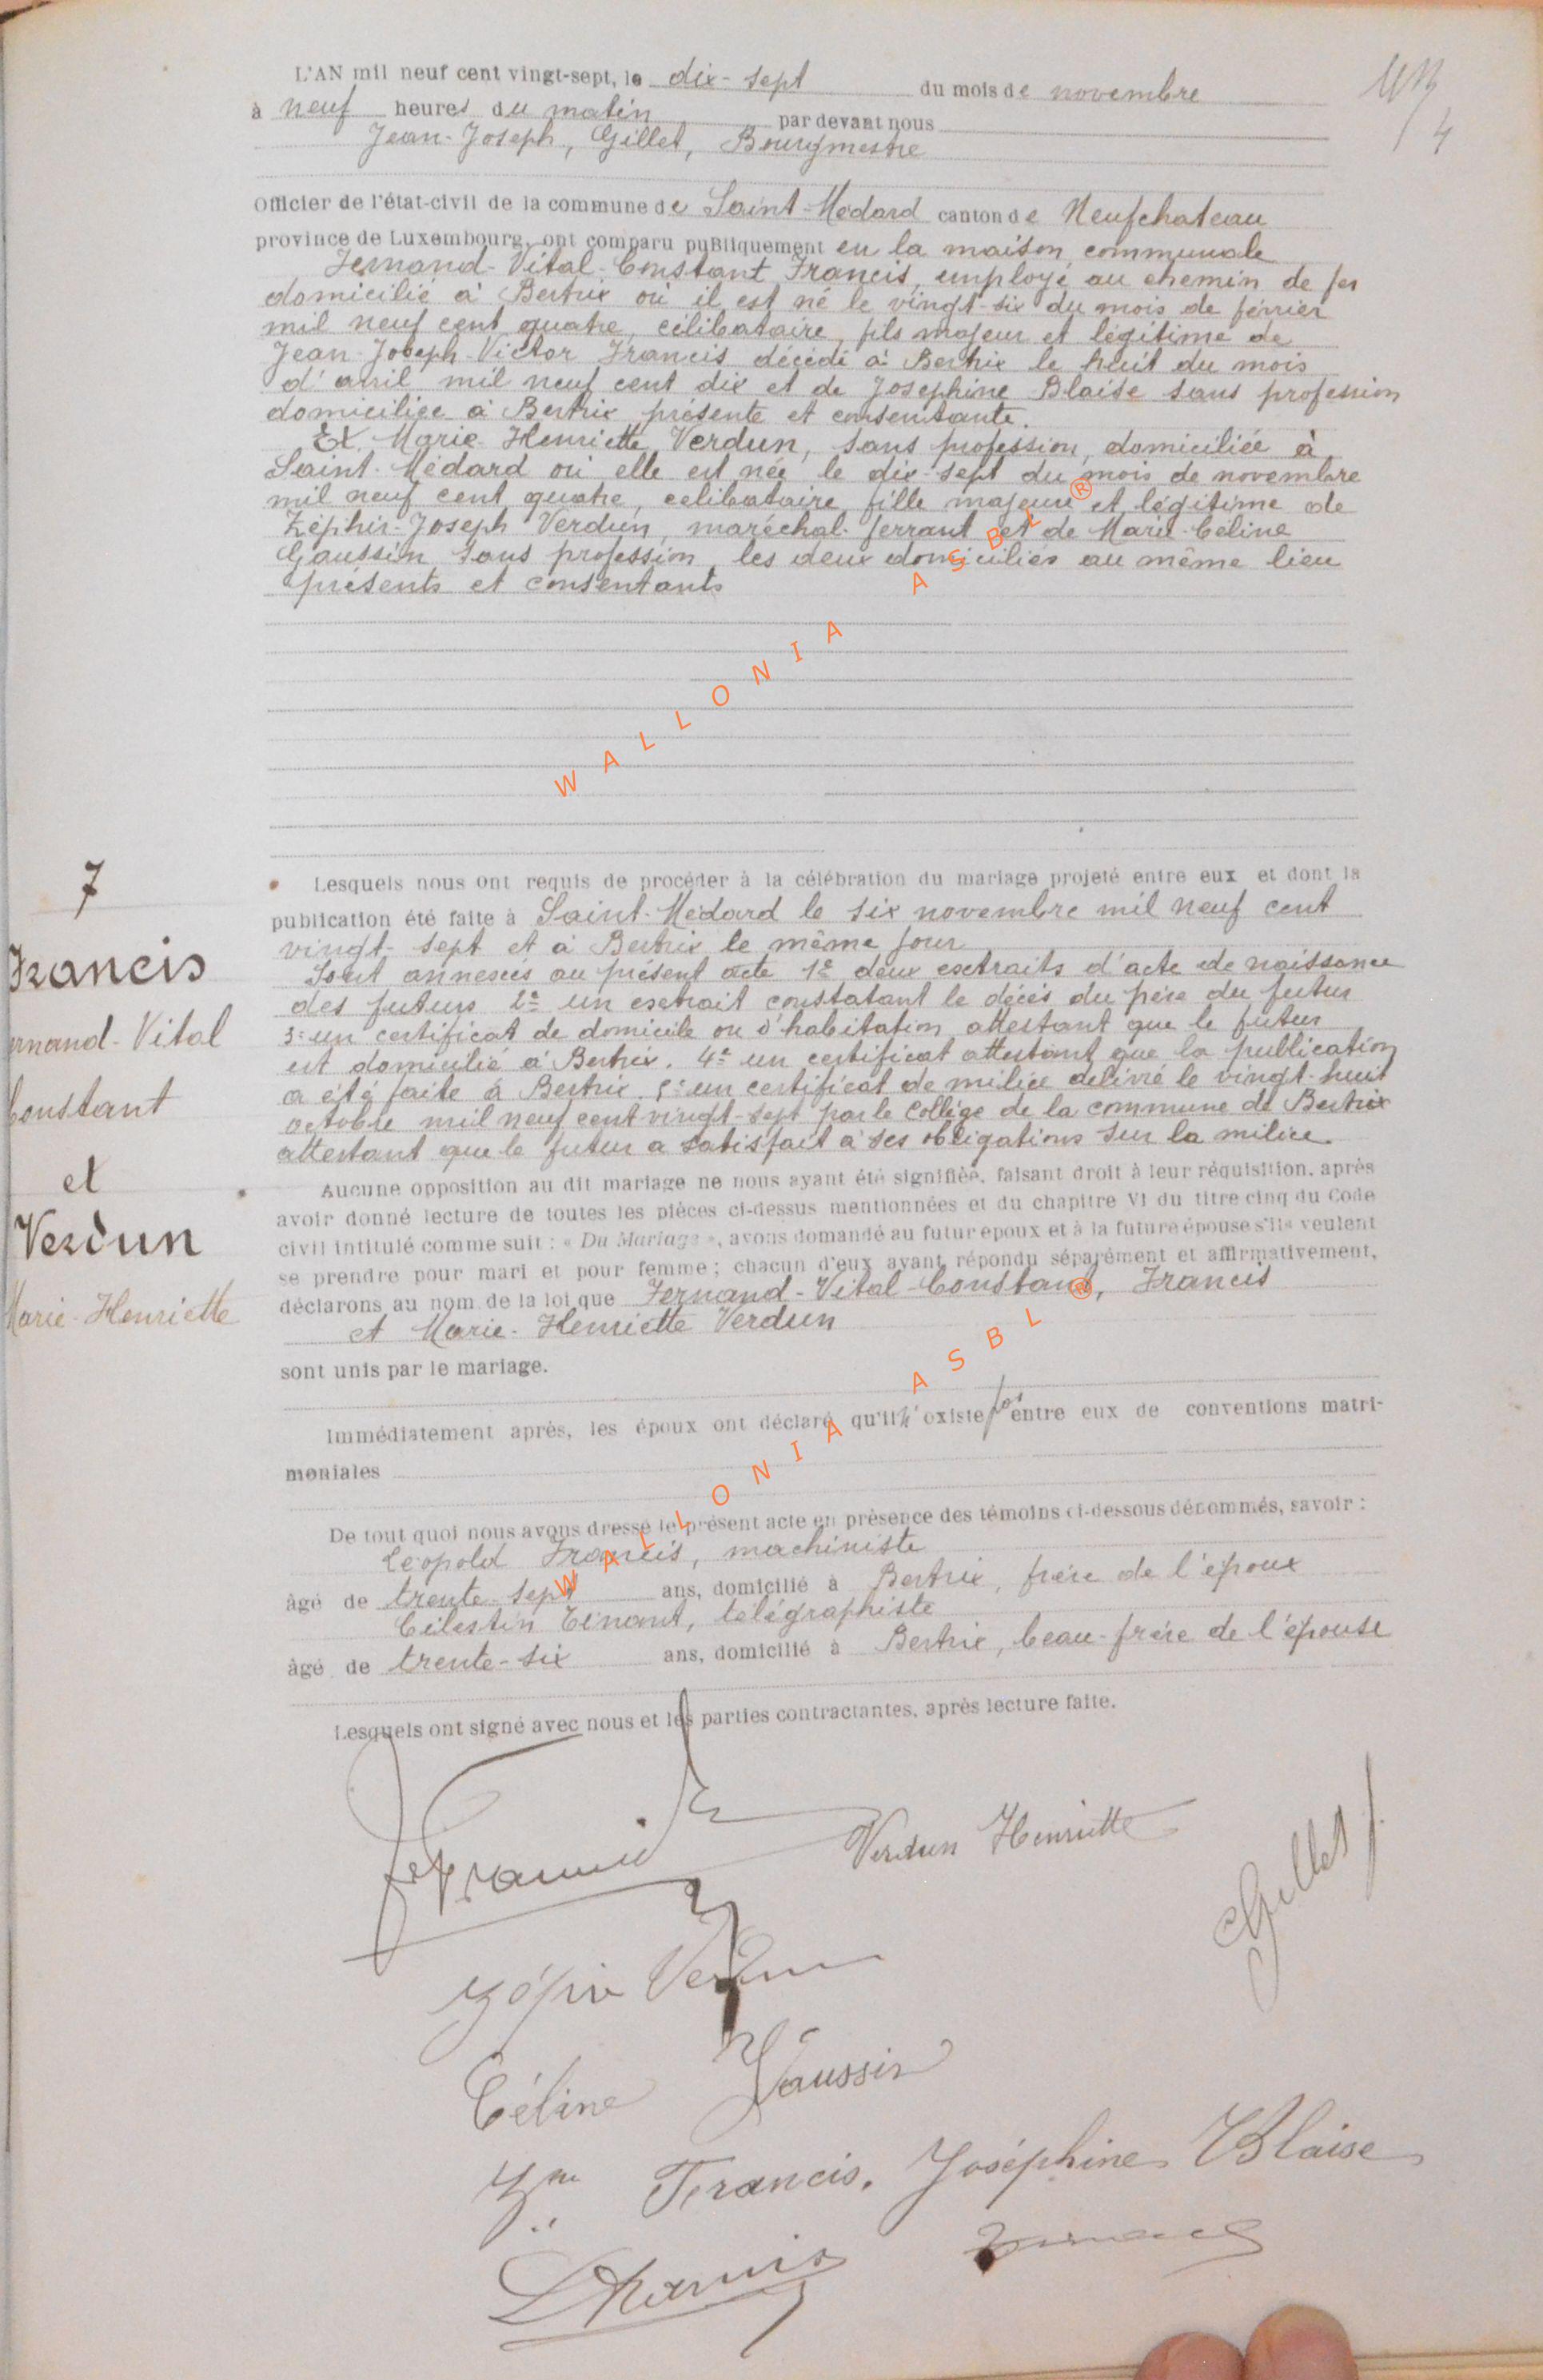 L'AN mil neuf cent vingt-sept, le dix-sept du mois de novembre
à neuf heures du matin par devant nous
Jean-Joseph, Gillet, Bourgmestre
Officier de l'état-civil de la commune de Saint-Médard canton de Neufchateau
province de Luxembourg, ont comparu publiquement en la maison communale
Fernand-Vital-Constant Francis, employé au chemin de fer
domicilié à Bertrix où il est né le vingt-six du mois de février
mil neuf cent quatre, célibataire, fils majeur et légitime de
Jean-Joseph-Victor Francis décédé à Bertrix le huit du mois
d'avril mil neuf cent dix et de Josephine Blaise sans profession
domiciliée à Bertrix présente et consentante.
Et Marie-Henriette Verdun, sans profession, domiciliée à
Saint-Médard où elle est née le dix-sept du mois de novembre
mil neuf cent quatre, célibataire fille majeure et légitime de
Zéphir-Joseph Verdun, maréchal-ferrant et de Marie-Céline
Gaussin sans profession, les deux domiciliés au même lieu
présents et consentants
WALLONIA ASBL ®
7
Francis
ernand-Vital
Constant
et
Verdun
Marie-Henriette
Lesquels nous ont requis de procéder à la célébration du mariage projeté entre eux et dont la
publication été faite à Saint-Médard le six novembre mil neuf cent
vingt-sept et à Bertrix le même jour
Sont annexées au présent acte 1º deux extraits d'acte de naissance
des futurs 2º un extrait constatant le décès du père du futur
3º un certificat de domicile ou d'habitation attestant que le futur
est domicilié à Bertrix. 4º un certificat attestant que la publication
a été faite à Bertrix. 5º un certificat de milice délivré le vingt-huit
octobre mil neuf cent vingt-sept par le Collège de la commune de Bertrix
attestant que le futur a satisfait à ses obligations sur la milice.
Aucune opposition au dit mariage ne nous ayant été signifiée, faisant droit à leur réquisition, après
avoir donné lecture de toutes les pièces ci-dessus mentionnées et du chapitre VI du titre cinq du Code
civil intitulé comme suit : « Du Mariage », avons demandé au futur époux et à la future épouse s'ils veulent
se prendre pour mari et pour femme ; chacun d'eux ayant répondu séparément et affirmativement,
déclarons au nom de la loi que Fernand-Vital-Constant, Francis
et Marie-Henriette Verdun
sont unis par le mariage.
Immédiatement après, les époux ont déclaré qu'il n'existe pas entre eux de conventions matri-
moniales
De tout quoi nous avons dressé le présent acte en présence des témoins ci-dessous dénommés, savoir :
Léopold Francis, machiniste
âgé de trente-sept ans, domicilié à Bertrix, frère de l'époux
Célestin Tinant, télégraphiste
âgé de trente-six ans, domicilié à Bertrix, beau-frère de l'épouse
WALLONIA ASBL ®
Lesquels ont signé avec nous et les parties contractantes, après lecture faite.
Francis
Verdun Henriette
Gillet J.
Zéphir Verdun
Céline Gaussin
Francis. Joséphine Blaise
L Francis